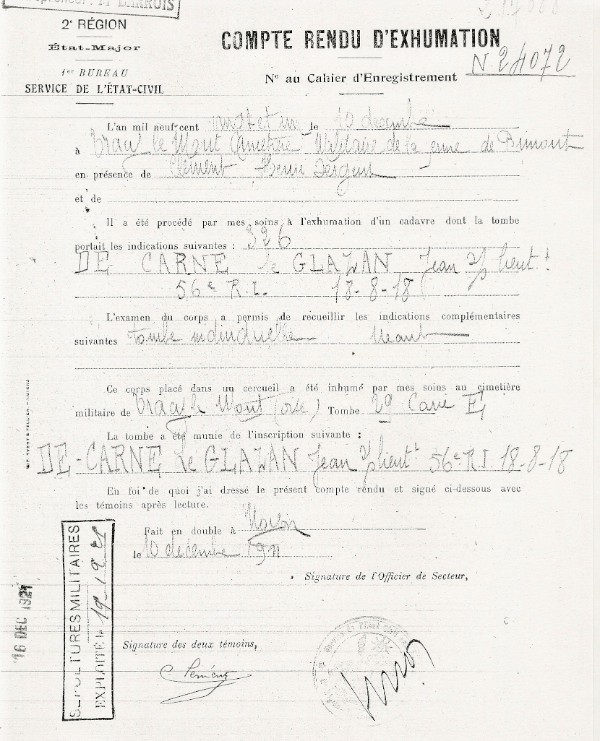 2e RÉGION
État-Major
1er BUREAU
SERVICE DE L'ÉTAT-CIVIL
COMPTE RENDU D'EXHUMATION
No au Cahier d'Enregistrement N 24072
L'an mil neuf cent vingt et un le 10 decembre
à Tracy le Mont Cimetière Militaire de la ferme de
en présence de Clément Sergent
et de
Il a été procédé par mes soins à l'exhumation d'un cadavre dont la tombe
portait les indications suivantes : 326
DE CARNE de GLAZAN Jean
56e R.I. 18-8-18
L'examen du corps a permis de recueillir les indications complémentaires
suivantes tombe individuelle Néant
Ce corps placé dans un cercueil a été inhumé par mes soins au cimetière
militaire de Tracy le Mont (oise) Tombe 20 Carré E
La tombe a été munie de l'inscription suivante :
DE-CARNE de GLAZAN Jean 56e R.I. 18-8-18
En foi de quoi j'ai dressé le présent compte rendu et signé ci-dessous avec
les témoins après lecture.
Fait en double à Noyon
le 10 décembre 1921
Signature de l'Officier de Secteur,
Signature des deux témoins,
SEPULTURES MILITAIRES
EXPLOITÉ le
16 DEC 1921